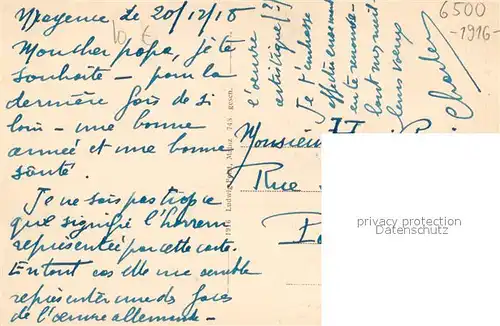 Mayence le 20/12/18
10 €
Mon cher papa, je te
souhaite - pour la
dernière fois de si
loin - une bonne
année et une bonne
santé.
Je ne sais pas trop ce
que signifie l'horreur
représentée par cette carte.
En tout cas elle me semble
représenter une des faces
de l'œuvre allemande -
l'œuvre
artistique (!?)
Je t'embrasse
affectueusement
en te
leurs vœux
Charles
6500
-1916-
Monsieur
Rue
Ludwig Mainz 743 gesch.
privacy protection
Datenschutz